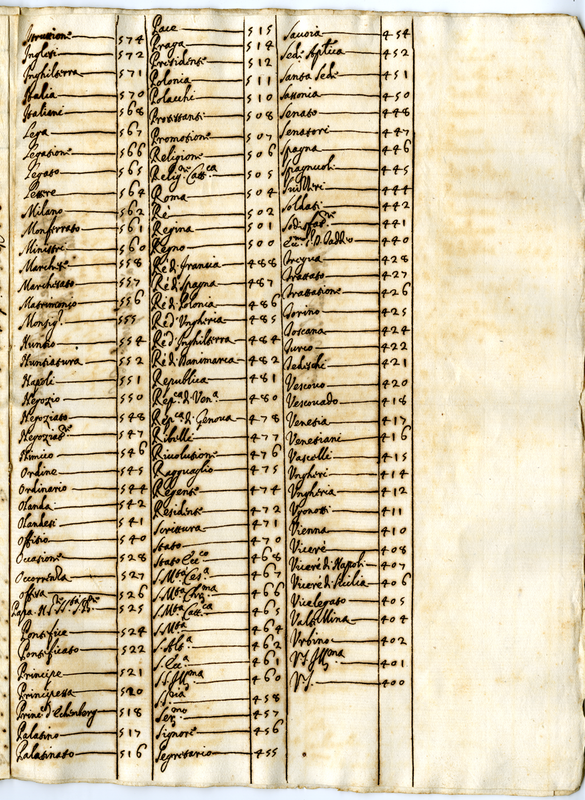 Istruzione 574
Inglesi 572
Inghilterra 571
Italia 570
Italiani 568
Lega 567
Legatione 566
Legato 565
Lettere 564
Milano 562
Monferrato 561
Ministri 560
Marchese 558
Marchesato 557
Matrimonio 556
Monsig.r 555
Nuntio 554
Nuntiatura 552
Napoli 551
Negozio 550
Negoziato 548
Negoziati 547
Nemico 546
Ordine 545
Ordinario 544
Olanda 542
Olandesi 541
Offitio 540
Occasione 528
Occorrenza 527
Offiva 526
Papa. N. S. 525
Pontifice 524
Pontificato 522
Principe 521
Principessa 520
Princ.e d'Echenberg 518
Palatino 517
Palatinato 516
Pace 515
Praga 514
Presidente 512
Polonia 511
Polacchi 510
Protestanti 508
Promotione 507
Religione 506
Relig.ne Catt.ca 505
Roma 504
Rè 502
Regina 501
Regno 500
Rè di Francia 488
Rè di Spagna 487
Rè di Polonia 486
Rè d'Ungheria 485
Rè d'Inghilterra 484
Rè di Danimarca 482
Republica 481
Rep.ca di Ven.a 480
Rep.ca di Genova 478
Ribelli 477
Risolutione 476
Ragguaglio 475
Regente 474
Residente 472
Scrittura 471
Stato 470
Stato Ecc.co 468
S. M.tà Ces.a 467
S. M.tà Chr.ma 466
S. M.tà Catt.ca 465
S. M.tà 464
S. Alt.a 462
S. Ecc.a 461
S. S. Ill.ma 460
458
Ser.mo 457
Signore 456
Segretario 455
Savoia 454
Sede Ap.tica 452
Santa Sede 451
Sassonia 450
Senato 448
Senatori 447
Spagna 446
Spagnuoli 445
444
Soldati 442
Sodisfat.ne 441
440
428
Trattato 427
Trattatione 426
Torino 425
Toscana 424
Turco 422
Tedeschi 421
Vescovo 420
Vescovado 418
Venetia 417
Venetiani 416
Vascelli 415
Ungheri 414
Ungheria 412
Ugonotti 411
Vienna 410
Viceré 408
Viceré di Napoli 407
Viceré di Sicilia 406
Vicelegato 405
Valtellina 404
Urbino 402
V. S. Ill.ma 401
V. S. 400